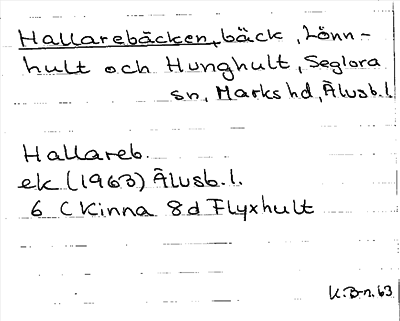 Hallarebäcken, bäck, Lönn-
hult och Hunghult, Seglora
sn, Marks hd, Älvsb.l.
Hallareb.
ek (1963) Älvsb.l.
6 C Kinna 8d Flyxhult
K.B-n.63